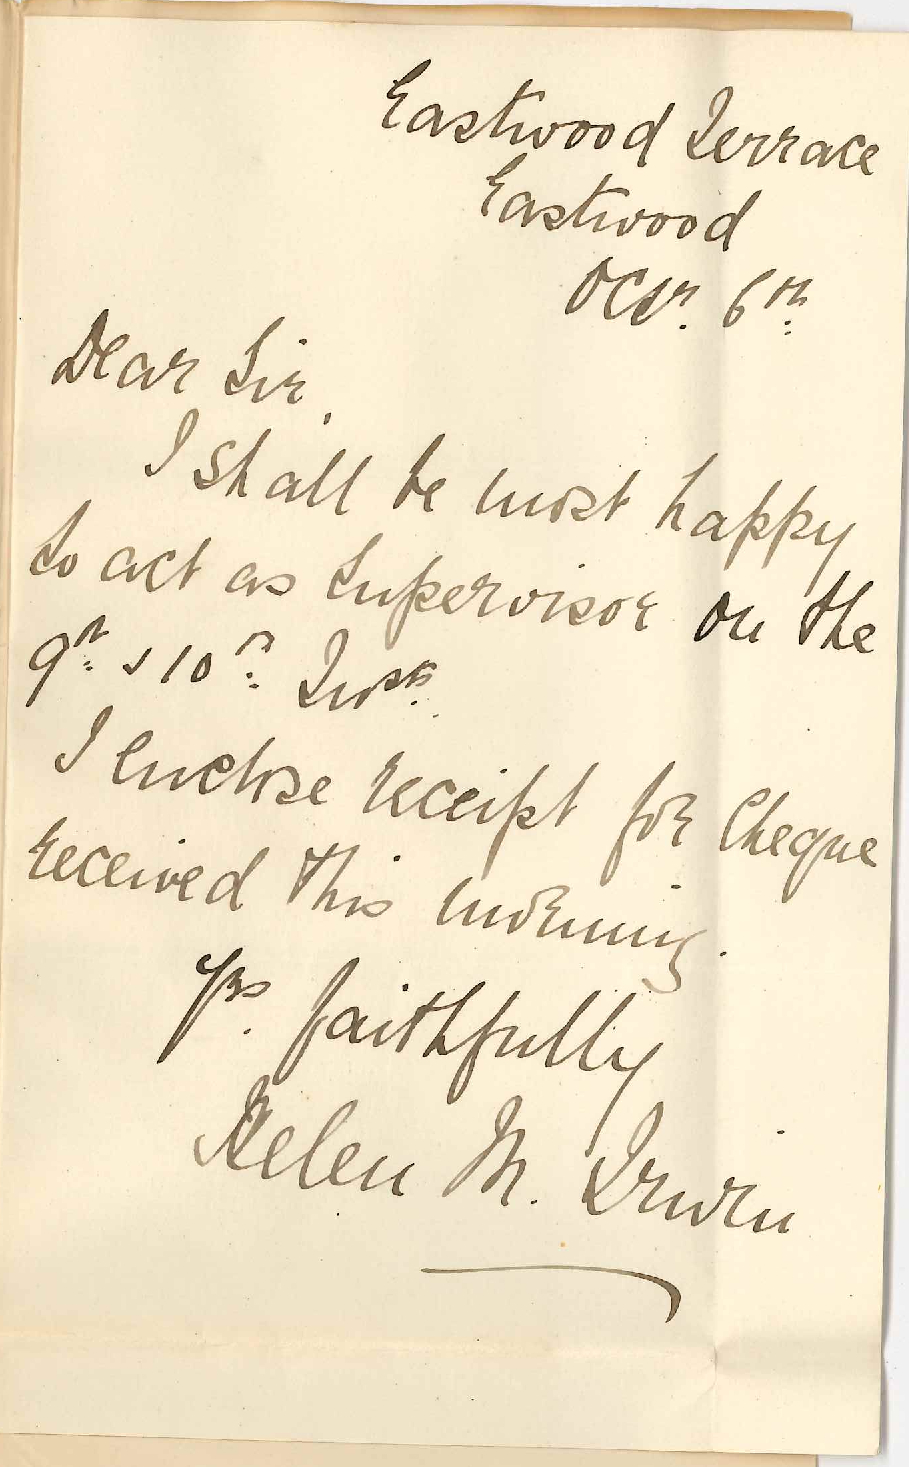 Eastwood Terrace
Eastwood
Octr. 6th
Dear Sir,
I shall be most happy
to act as Supervisor on the
9th & 10th Inst.
I enclose receipt for Cheque
received this morning.
Yrs. faithfully
Helen M. Irwin